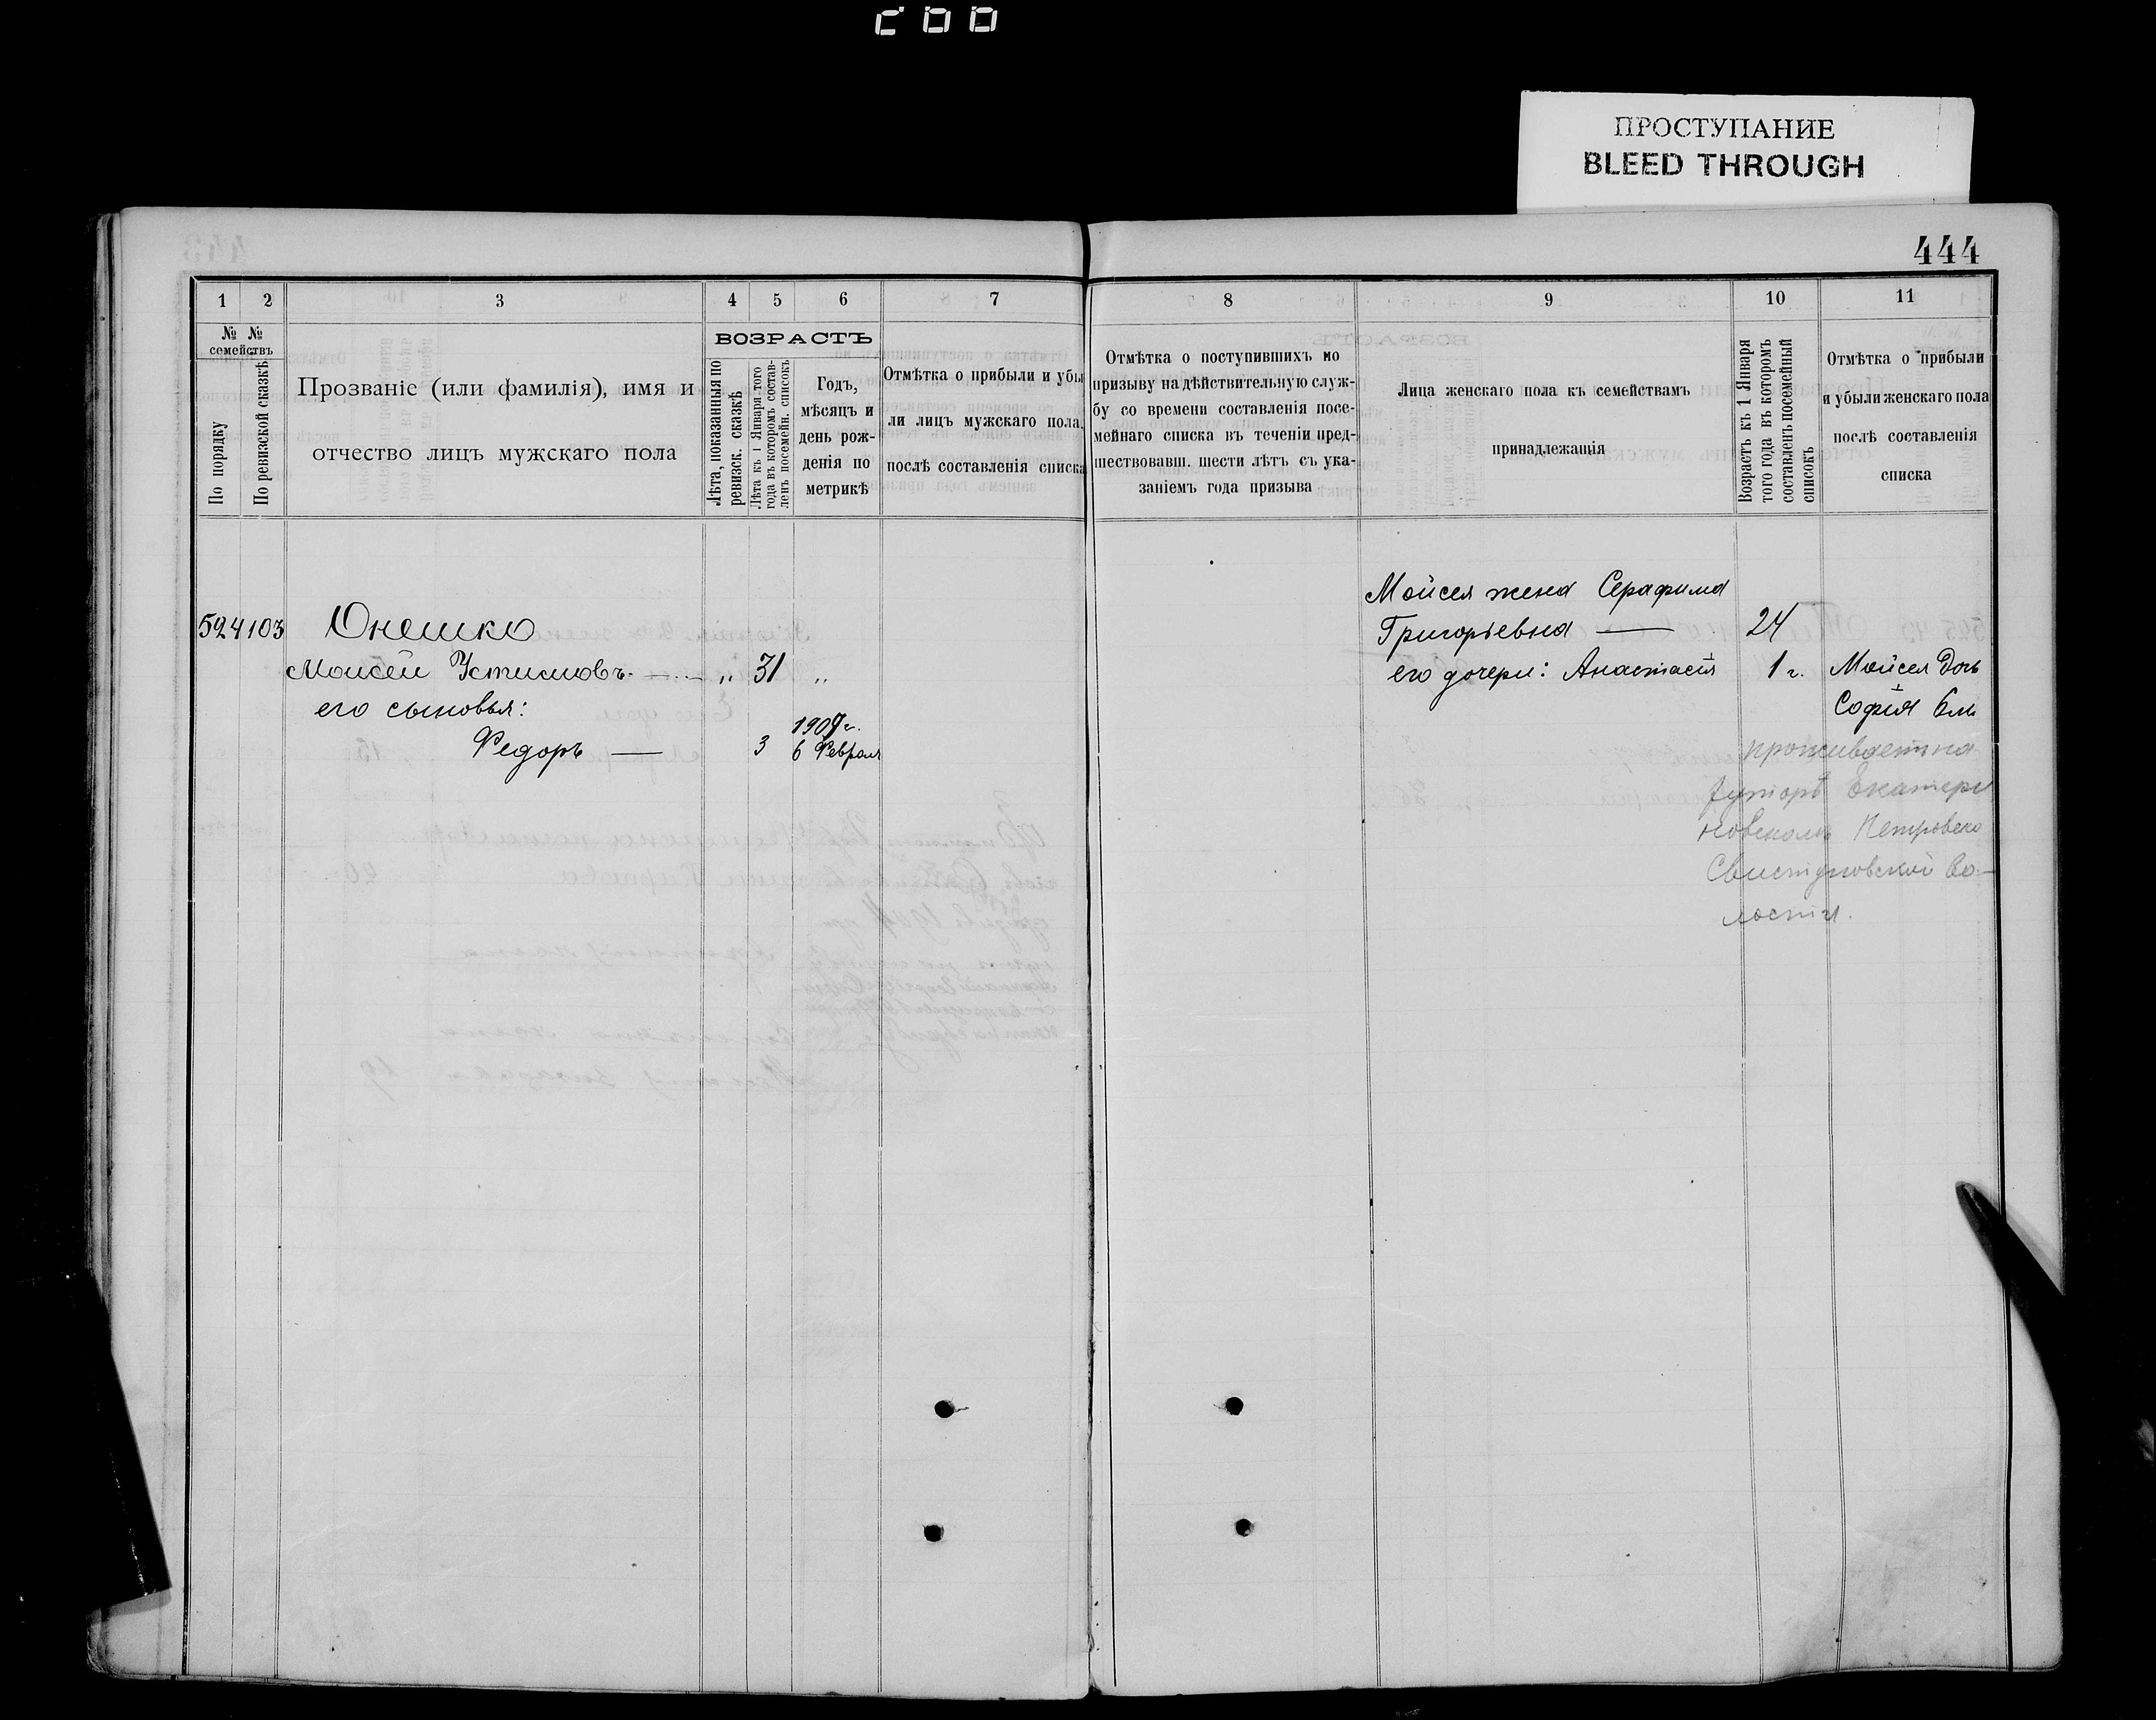 ПРОСТУПАНИЕ
BLEED THROUGH
444
1 2 3 4 5 6 7 8 9 10 11
№ № семействъ
По порядку
По ревизской сказкѣ
Прозваніе (или фамилія), имя и
отчество лицъ мужскаго пола
ВОЗРАСТЪ
Лѣта, показанныя по
ревизск. сказкѣ
Лѣта къ 1 Января того
года въ которомъ состав-
ленъ посемейн. списокъ
Годъ,
мѣсяцъ и
день рож-
денія по
метрикѣ
Отмѣтка о прибыли и убы
ли лицъ мужскаго пола,
послѣ составленія списка
Отмѣтка о поступившихъ по
призыву на дѣйствительную служ-
бу со времени составленія посе-
мейнаго списка въ теченіи пред-
шествовавш. шести лѣтъ съ ука-
заніемъ года призыва
Лица женскаго пола къ семействамъ
принадлежащія
Возрастъ къ 1 Января
того года въ которомъ
составленъ посемейный
списокъ
Отмѣтка о прибыли
и убыли женскаго пола
послѣ составленія
списка
524 103 Онешко
Моисей Устиновъ „ 31 „
его сыновья:
Федоръ — 3 1907 г.
6 Февраля
Мойсея жена Серафима
Григорьевна — 24
его дочери: Анастасія 1 г.
Мойсея дочь
Софія 6 м.
проживаетъ на
хуторѣ Екатери
новскомъ Петровско
Свистуновской во-
лости.